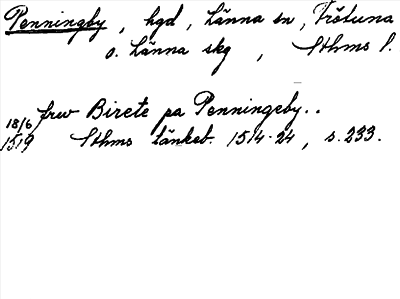 Penningby, hgd, Länna sn, Frötuna
o. Länna skg, Sthms l.
18/6 frw Birete pa Penningeby..
1519 Sthms tänkeb. 1514-24, s. 233.